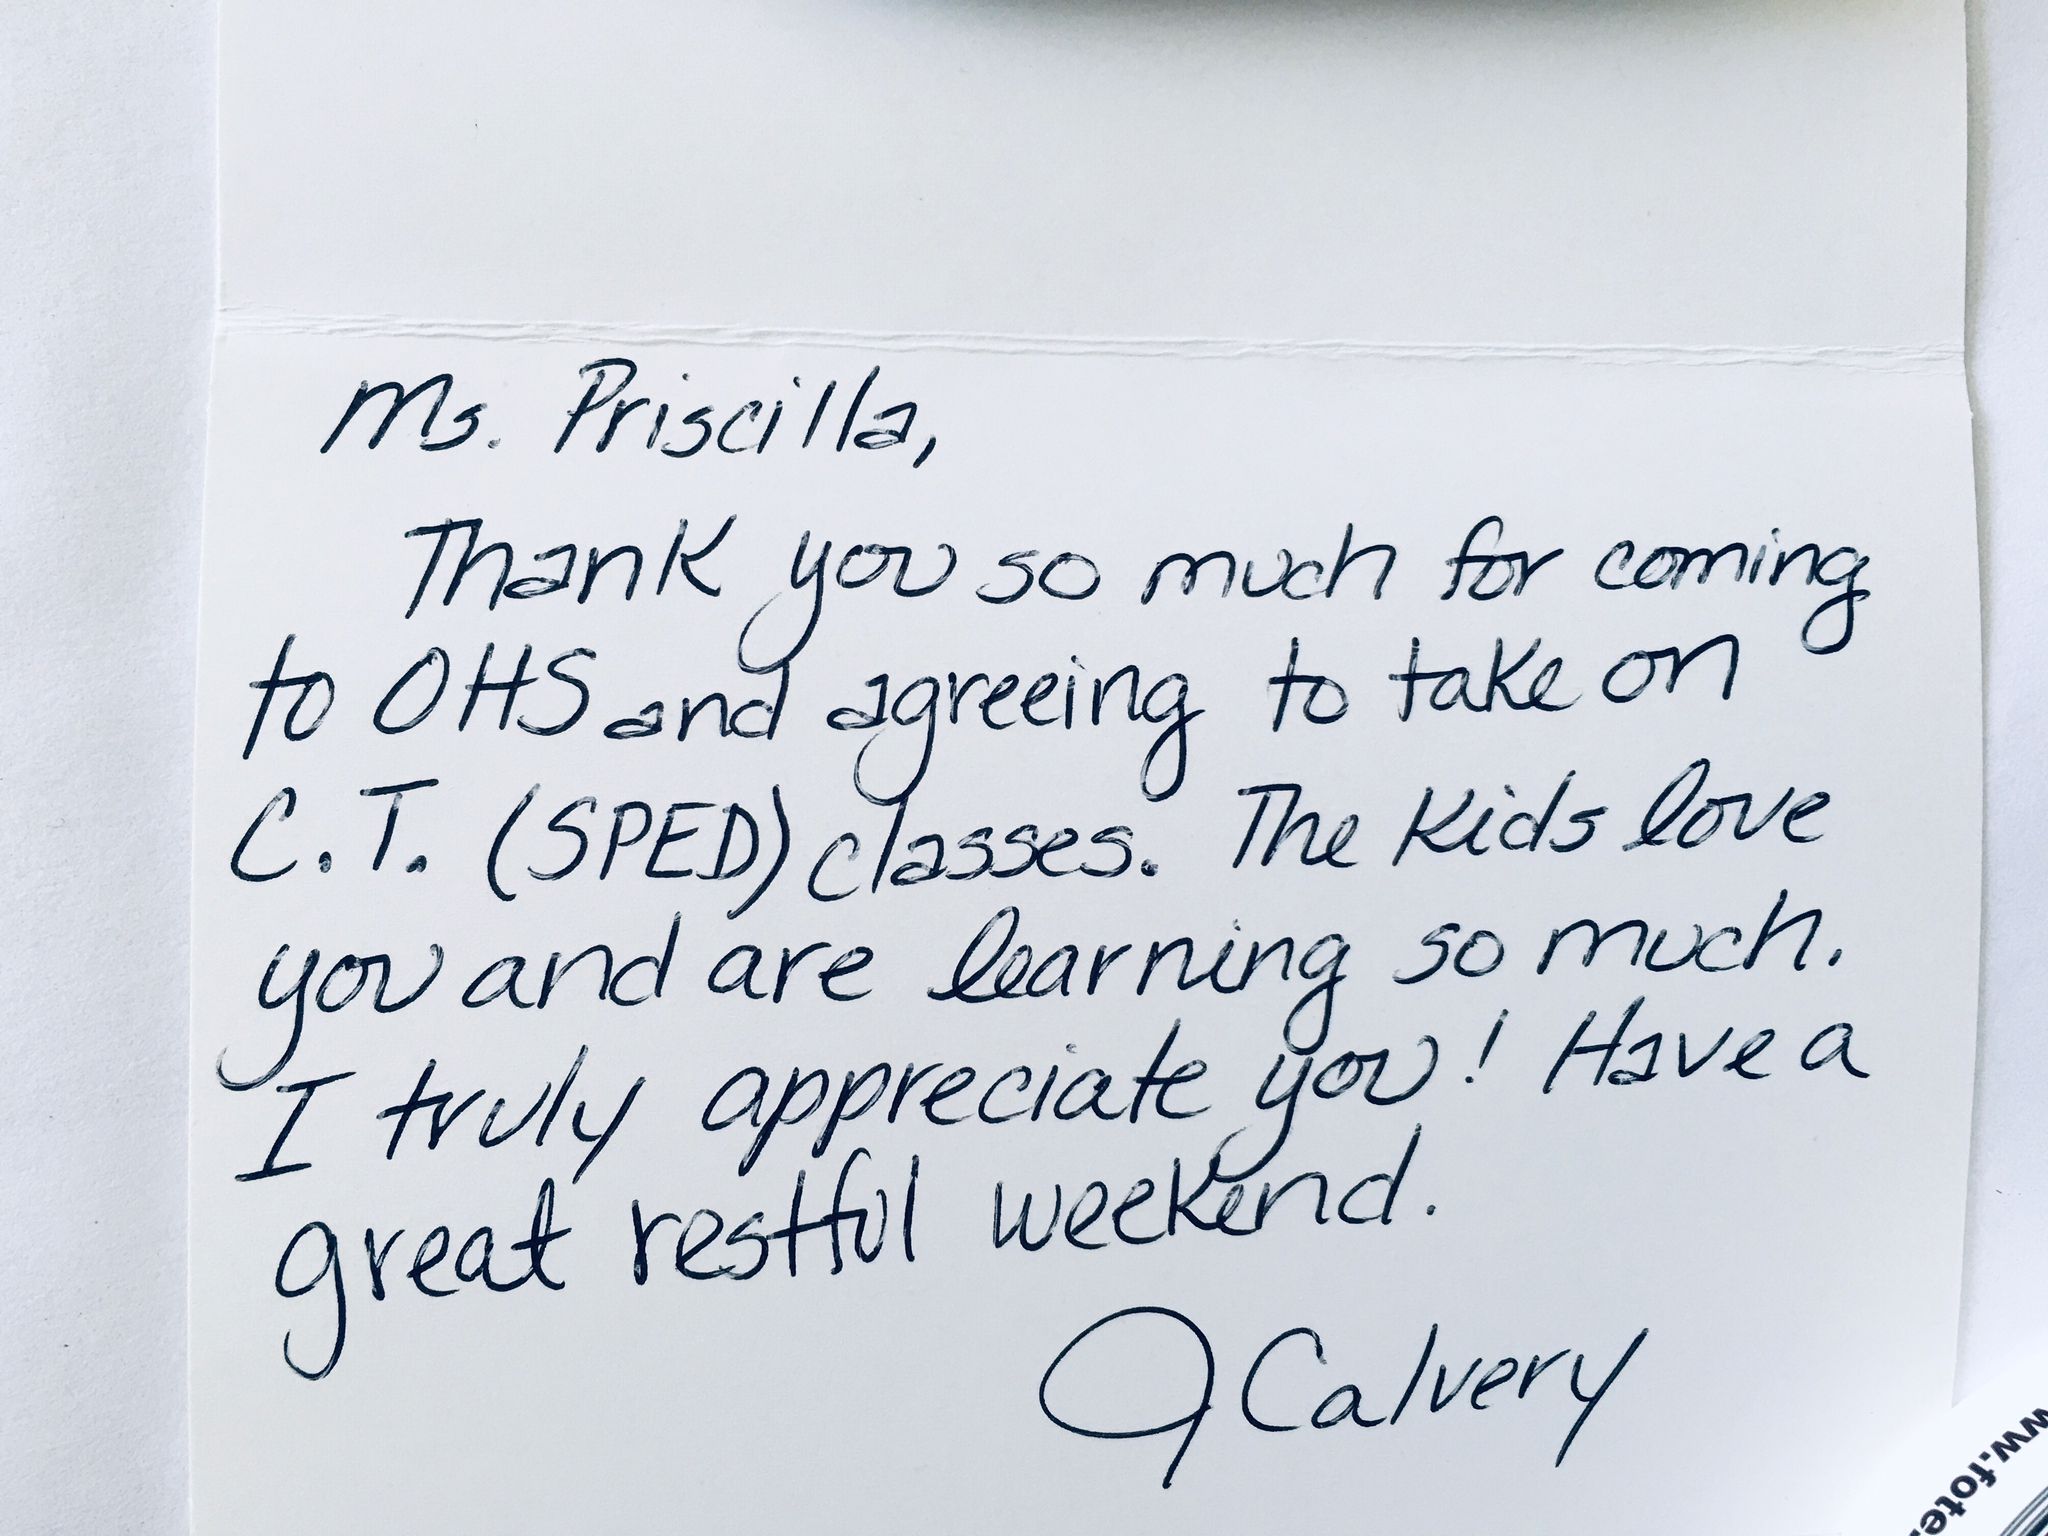 Ms. Priscilla,
Thank you so much for coming
to OHS and agreeing to take on
C.T. (SPED) classes. The kids love
you and are learning so much.
I truly appreciate you! Have a
great restful weekend.
J Calvery
ww.fote